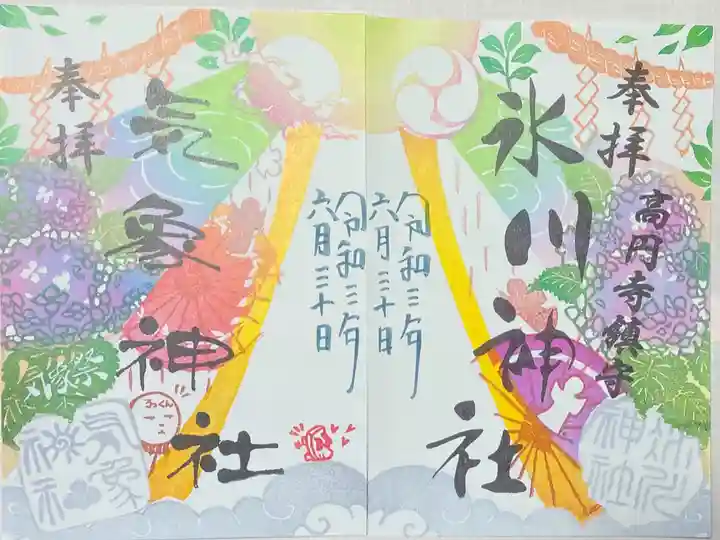 奉拝
高円寺鎮守
氷川神社
令和三年
六月三十日
氷川
神社
奉拝
気象神社
令和三年
六月三十日
気象祭
気象
神社